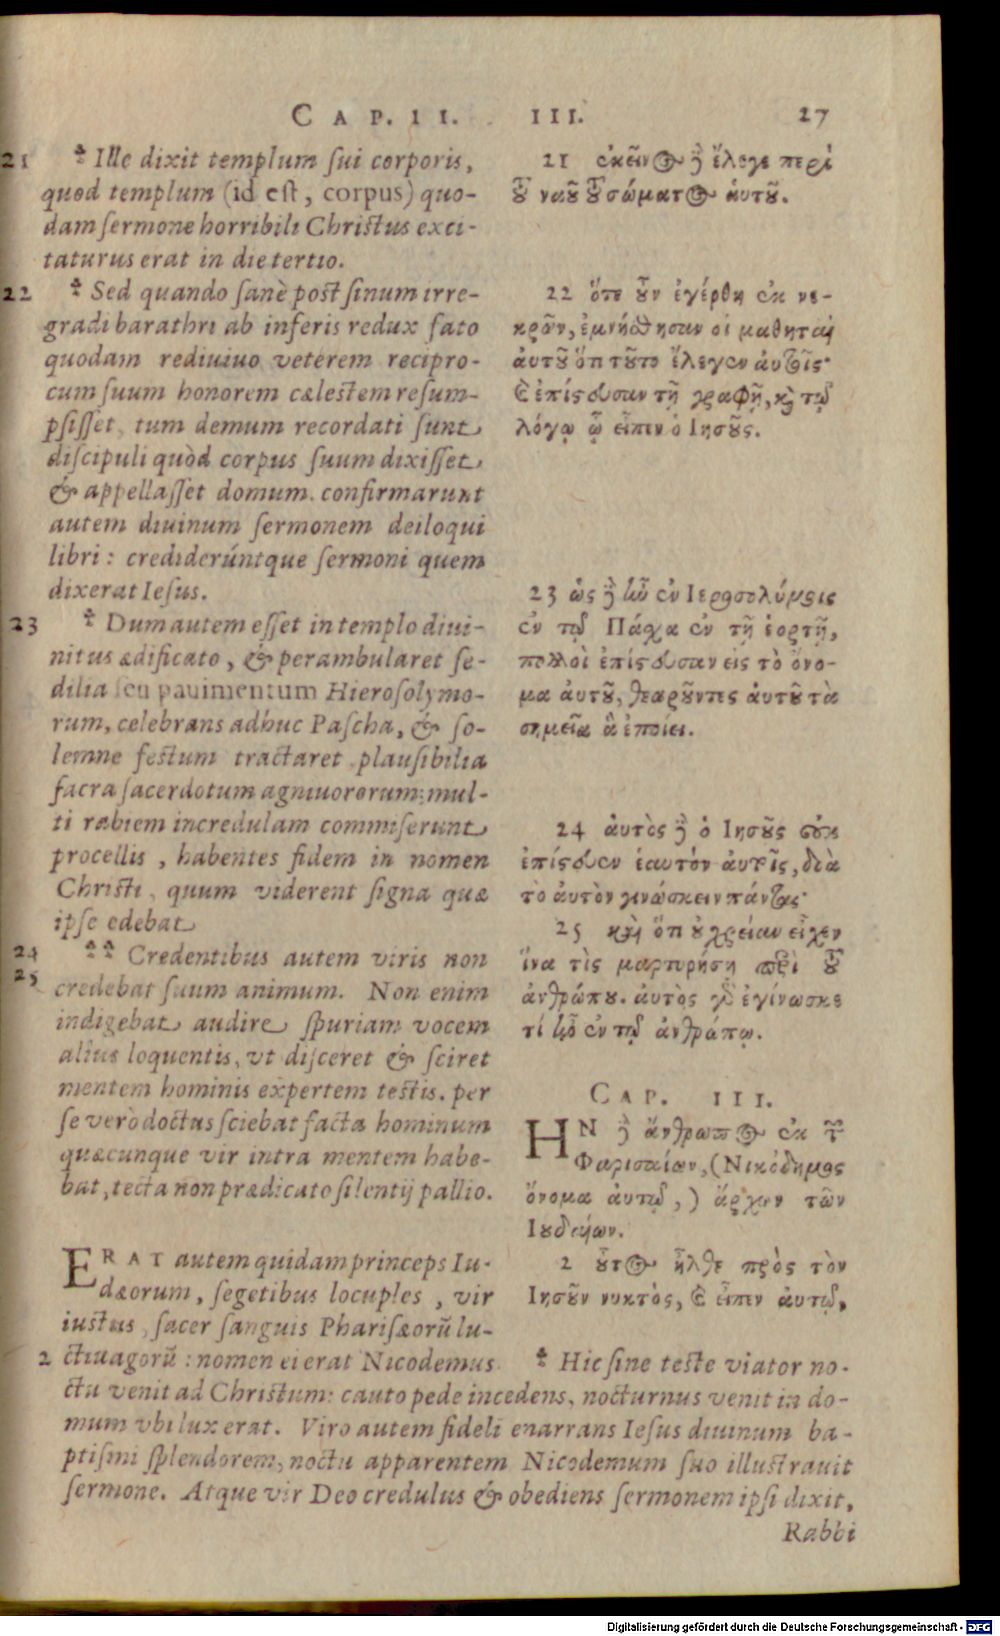 CAP. II. III. 27
21 * Ille dixit templum ſui corporis,
quod templum (id eſt, corpus) quo-
dam ſermone horribili Chriſtus exci-
taturus erat in die tertio.
22 * Sed quando ſanè post ſinum irre-
gradi barathri ab inferis redux fato
quodam rediuiuo veterem recipro-
cum ſuum honorem cæleſtem reſum-
pſiſſet, tum demum recordati ſunt
diſcipuli quòd corpus ſuum dixiſſet
& appellaſſet domum. confirmarunt
autem diuinum ſermonem deiloqui
libri: credideruńtque ſermoni quem
dixerat Ieſus.
23 * Dum autem eſſet in templo diui-
nitus ædificato, & perambularet ſe-
dilia ſeu pauimentum Hieroſolymo-
rum, celebrans adhuc Paſcha, & ſo-
lemne feſtum tractaret plauſibilia
ſacra ſacerdotum agniuororum: mul-
ti rabiem incredulam commiſerunt
procellis, habentes fidem in nomen
Chriſti, quum viderent ſigna quæ
ipſe edebat
24 * * Credentibus autem viris non
25 credebat ſuum animum. Non enim
indigebat audire ſpuriam vocem
alius loquentis, vt diſceret & ſciret
mentem hominis expertem teſtis. per
ſe verò doctus ſciebat facta hominum
quæcunque vir intra mentem habe-
bat, tecta non prædicato ſilentij pallio.
21 ἐκεῖνος δὲ ἔλεγε περὶ
τοῦ ναοῦ τοῦ σώματος ἁυτοῦ.
22 ὅτε οὖν ἐγέρθη ἐκ νε-
κρῶν, ἐμνήσθησαν οἱ μαθηταὶ
ἀυτοῦ ὅτι τοῦτο ἔλεγεν ἀυτοῖς·
καὶ ἐπίστευσαν τῇ γραφῇ, καὶ τῷ
λόγῳ ᾧ εἶπεν ὁ Ιησοῦς.
23 ὡς δὲ ἦν ἐν Ιεροσολύμοις
ἐν τῷ Πάχα ἐν τῇ ἑορτῇ,
πολλοὶ ἐπίστευσαν εἰς τὸ ὄνο-
μα ἀυτοῦ, θεωροῦντες ἀυτοῦ τὰ
σημεῖα ἃ ἐποίει.
24 ἀυτὸς δὲ ὁ Ιησοῦς οὐκ
ἐπίστευεν ἑαυτὸν ἀυτοῖς, διὰ
τὸ ἀυτὸν γινώσκειν πάντας·
25 καὶ ὅτι οὐ χρείαν εἶχεν
ἵνα τὶς μαρτυρήσῃ περὶ τοῦ
ἀνθρώπου. ἀυτὸς γὰρ ἐγίνωσκε
τί ἦν ἐν τῷ ἀνθρώπῳ.
CAP. III.
ΗΝ δὲ ἄνθρωπος ἐκ τῶν
Φαρισαίων, (Νικόδημος
ὄνομα ἀυτῷ,) ἄρχων τῶν
Ιουδαίων.
2 οὗτος ἦλθε πρὸς τὸν
Ιησοῦν νυκτὸς, καὶ εἶπεν ἀυτῷ,
ERAT autem quidam princeps Iu-
dæorum, ſegetibus locuples, vir
iuſtus, ſacer ſanguis Phariſæorũ lu-
ctiuagorũ: nomen ei erat Nicodemus.
2 * Hic ſine teſte viator no-
ctu venit ad Chriſtum: cauto pede incedens, nocturnus venit in do-
mum vbi lux erat. Viro autem fideli enarrans Ieſus diuinum ba-
ptiſmi ſplendorem, noctu apparentem Nicodemum ſuo illuſtrauit
ſermone. Atque vir Deo credulus & obediens ſermonem ipſi dixit,
Rabbi
Digitalisierung gefördert durch die Deutsche Forschungsgemeinschaft - DFG